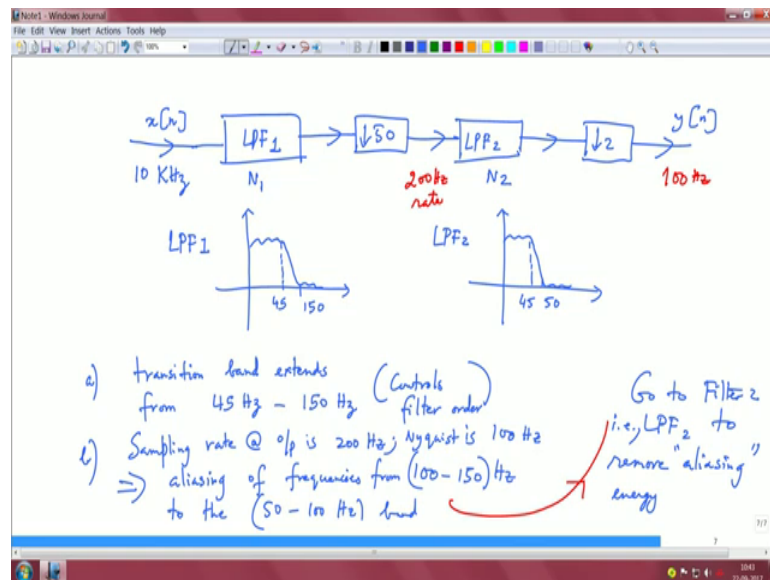 Note1 - Windows Journal
File Edit View Insert Actions Tools Help
100%
B I
x[n]
LPF1
↓50
LPF2
↓2
y[n]
10 KHz
N1
200Hz
rate
N2
100 Hz
LPF1
45
150
LPF2
45 50
a) transition band extends
from 45 Hz - 150 Hz
(Controls
filter order)
b) Sampling rate @ o/p is 200 Hz; Nyquist is 100 Hz
⇒ aliasing of frequencies from (100-150) Hz
to the (50-100 Hz) band
Go to Filter 2
i.e., LPF2 to
remove "aliasing"
energy
7/7
7
10:43